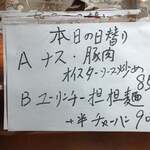 本日の日替り
A ナス・豚肉
オイスターソース炒め
85
B ユーリンチー担担麺
+半チャーハン 90